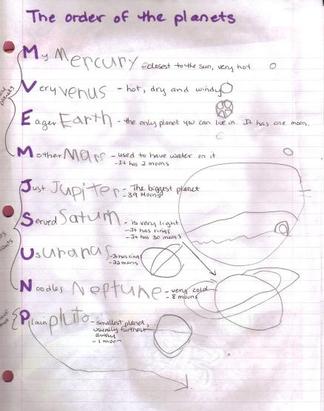 The order of the planets
My Mercury closest to the sun, very hot
Very Venus - hot, dry and windy
Eager Earth - the only planet you can live in. It has one moon.
Mother Mars - used to have water on it
- It has 2 moons
Just Jupiter - The biggest planet
- 39 Moons
Served Saturn - is very light
- It has rings
- It has 30 moons
Us Uranus
Noodles Neptune - very cold
- 8 moons
Plain Pluto - smallest planet,
usually furthest
away
- 1 moon